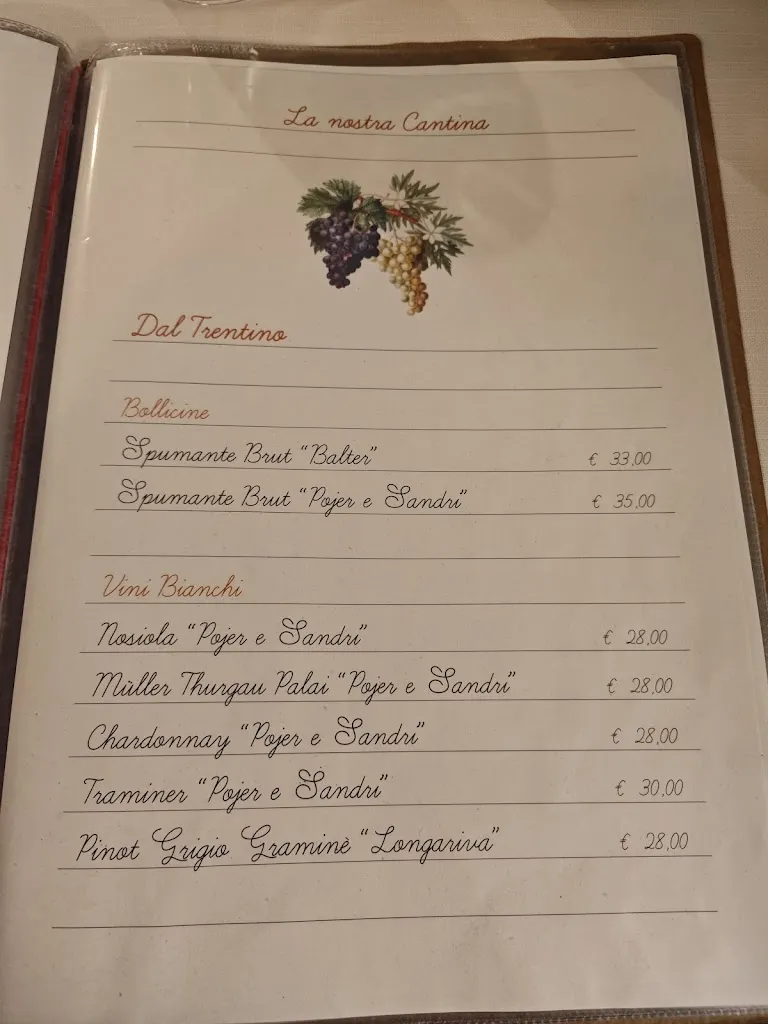 La nostra Cantina
Dal Trentino
Bollicine
Spumante Brut "Balter" € 33,00
Spumante Brut "Pojer e Sandri" € 35,00
Vini Bianchi
Nosiola "Pojer e Sandri" € 28,00
Müller Thurgau Palai "Pojer e Sandri" € 28,00
Chardonnay "Pojer e Sandri" € 28,00
Traminer "Pojer e Sandri" € 30,00
Pinot Grigio Graminè "Longariva" € 28,00